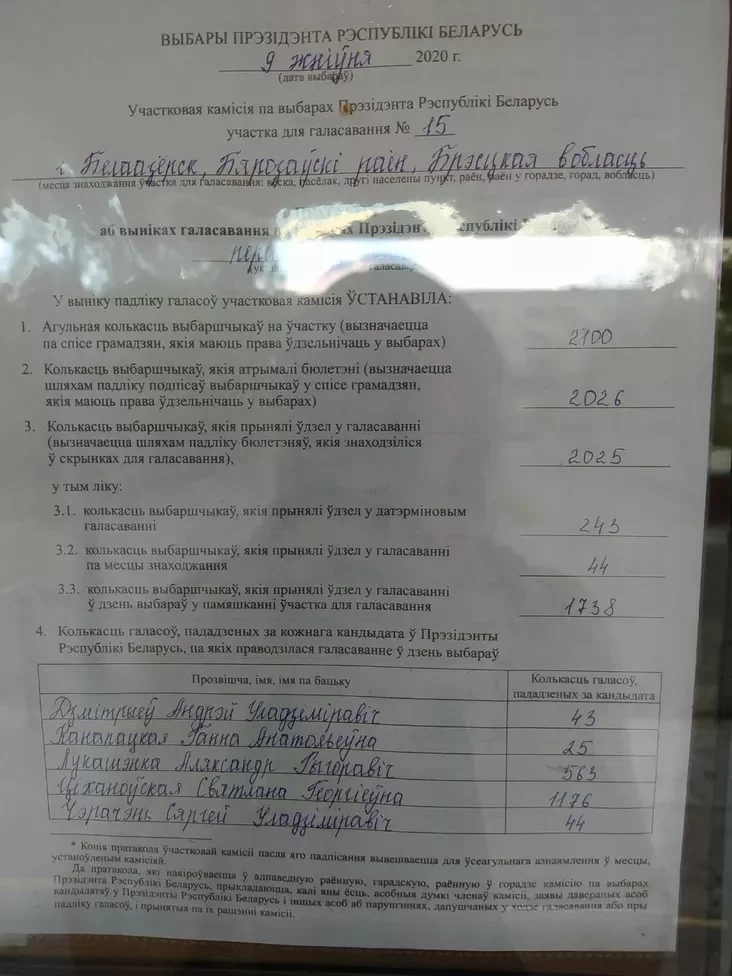 ВЫБАРЫ ПРЭЗІДЭНТА РЭСПУБЛІКІ БЕЛАРУСЬ
9 жніўня 2020 г.
(дата выбараў)
Участковая камісія па выбарах Прэзідэнта Рэспублікі Беларусь
участка для галасавання № 15
г. Белаазёрск, Бярозаўскі раён, Брэсцкая вобласць
(месца знаходжання ўчастка для галасавання: вёска, пасёлак, другі населены пункт, раён, раён у горадзе, горад, вобласць)
аб выніках галасавання Прэзідэнта
У выніку падліку галасоў участковая камісія ЎСТАНАВІЛА:
1. Агульная колькасць выбаршчыкаў на ўчастку (вызначаецца
па спісе грамадзян, якія маюць права ўдзельнічаць у выбарах) 2100
2. Колькасць выбаршчыкаў, якія атрымалі бюлетэні (вызначаецца
шляхам падліку подпісаў выбаршчыкаў у спісе грамадзян,
якія маюць права ўдзельнічаць у выбарах) 2026
3. Колькасць выбаршчыкаў, якія прынялі ўдзел у галасаванні
(вызначаецца шляхам падліку бюлетэняў, якія знаходзіліся
ў скрынках для галасавання), 2025
у тым ліку:
3.1. колькасць выбаршчыкаў, якія прынялі ўдзел у датэрміновым
галасаванні 243
3.2. колькасць выбаршчыкаў, якія прынялі ўдзел у галасаванні
па месцы знаходжання 44
3.3. колькасць выбаршчыкаў, якія прынялі ўдзел у галасаванні
ў дзень выбараў у памяшканні ўчастка для галасавання 1738
4. Колькасць галасоў, пададзеных за кожнага кандыдата ў Прэзідэнты
Рэспублікі Беларусь, па якіх праводзілася галасаванне ў дзень выбараў
Прозвішча, імя, імя па бацьку Колькасць галасоў,
пададзеных за кандыдата
Дзмітрыеў Андрэй Уладзіміравіч 43
Канапацкая Ганна Анатольеўна 25
Лукашэнка Аляксандр Рыгоравіч 563
Ціханоўская Святлана Георгіеўна 1176
Чэрачэнь Сяргей Уладзіміравіч 44
* Копія пратакола ўчастковай камісіі пасля яго падпісання вывешваецца для ўсеагульнага азнаямлення ў месцы,
устаноўленым камісіяй.
Да пратакола, які накіроўваецца ў адпаведную раённую, гарадскую, раённую ў горадзе камісію па выбарах
Прэзідэнта Рэспублікі Беларусь, прыкладаюцца, калі яны ёсць, асобныя думкі членаў камісіі, заявы давераных асоб
кандыдатаў у Прэзідэнты Рэспублікі Беларусь і іншых асоб аб парушэннях, дапушчаных у ходзе галасавання або пры
падліку галасоў, і прынятыя па іх рашэнні камісіі.